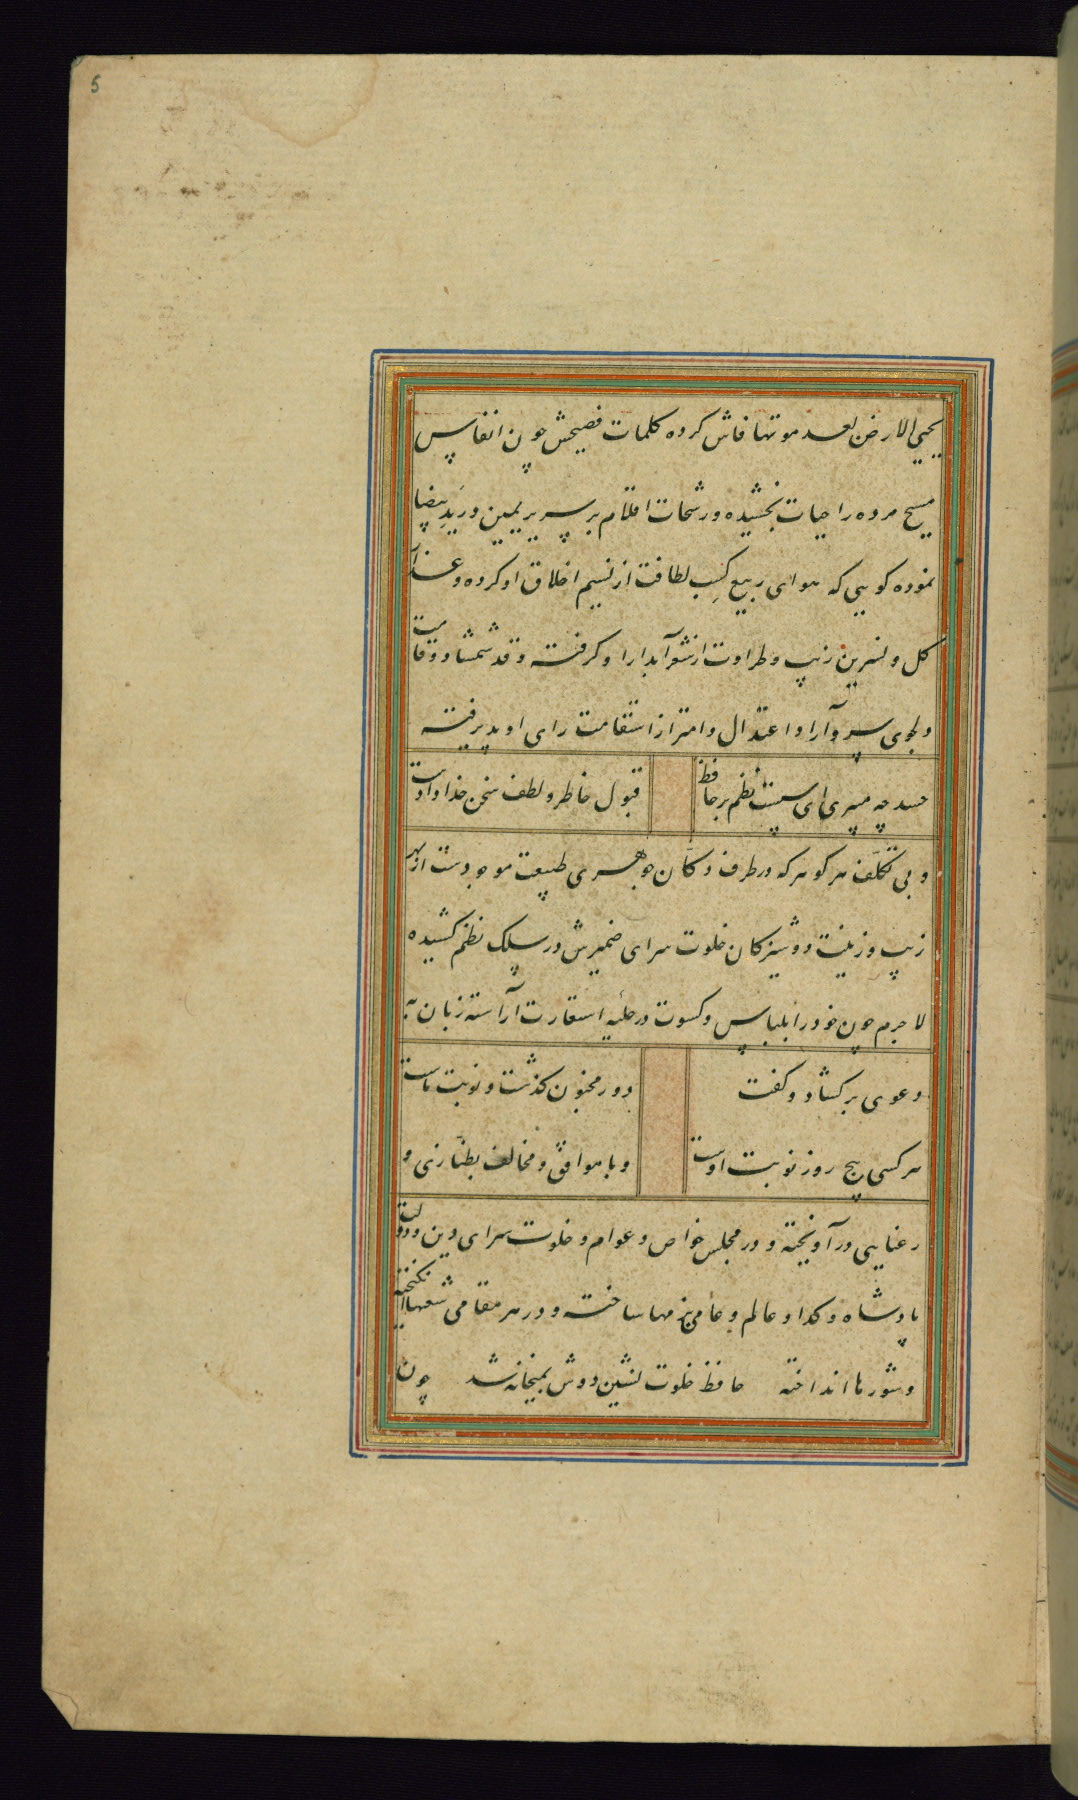 5
یحیی الارض بعد موتها فاش کرده کلمات فصیحش چون انفاس
مسیح مرده را حیات بخشیده و رشحات اقلام بر سریر یمین در ید بیضا
نموده کویی که هوای ربیع کسب لطافت از نسیم اخلاق او کرده و عذار
کل و نسرین زیب و طراوت از شعر آبدار او کرفته و قد شمشاد و قامت
دلجوی سرو آزاد اعتدال و اهتزاز استقامت رای او پذیرفته
حسد چه میبری ای سست نظم بر حافظ
قبول خاطر و لطف سخن خداداداست
و بی تکلف هر کوهر که در طرف دکان جوهری طبیعت موجودست از بهر
زیب و زینت دوشیزکان خلوت سرای ضمیرش در سلک نظم کشیده
لا جرم چون خود را بلباس و کسوت و حلیه استعارت آراسته زبان به
دعوی برکشاد و کفت
دور مجنون کذشت و نوبت ماست
هر کسی پنج روز نوبت اوست
و با موافق و مخالف بطنازی و
رعنایی در آویخته و در مجلس خواص و عوام و خلوت سرای دین و دولت
پادشاه و کدا و عالم و عامی بزمها ساخته و در هر مقامی شغبها انکیخته
و شورها انداخته حافظ خلوت نشین دوش بمیخانه شد چون